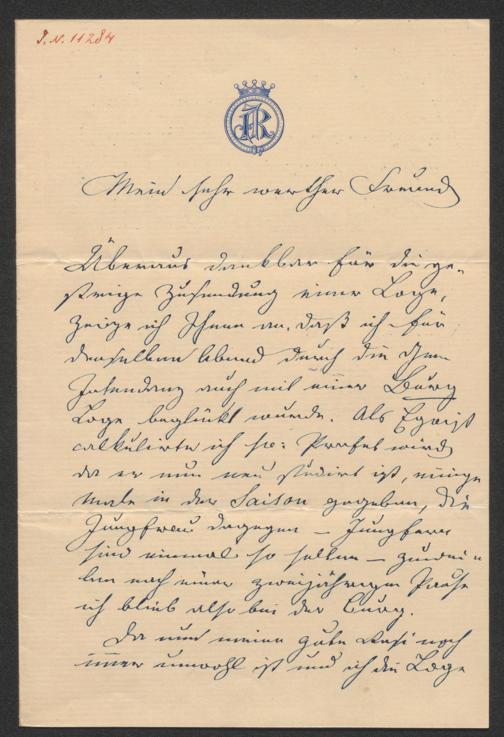 I.N. 11284
JR
Mein sehr werther Freund
Überaus dankbar für die ge-
strige Zusendung einer Loge,
zeige ich Ihnen an, daß ich für
denselben Abend durch die Gen
Intendanz auch mit einer Burg
Loge beglückt wurde. Als Egoist
calkulirte ich so: Profet wird
da er nun neu studirt ist, einige
male in der Saison gegeben, die
Jungfrau dagegen – Jungfern
sind einmal so selten –
len nach einer zweijährigen Pause
ich blieb also bei der Burg.
Da nun meine gute Resi noch
immer unwohl ist und ich die Loge